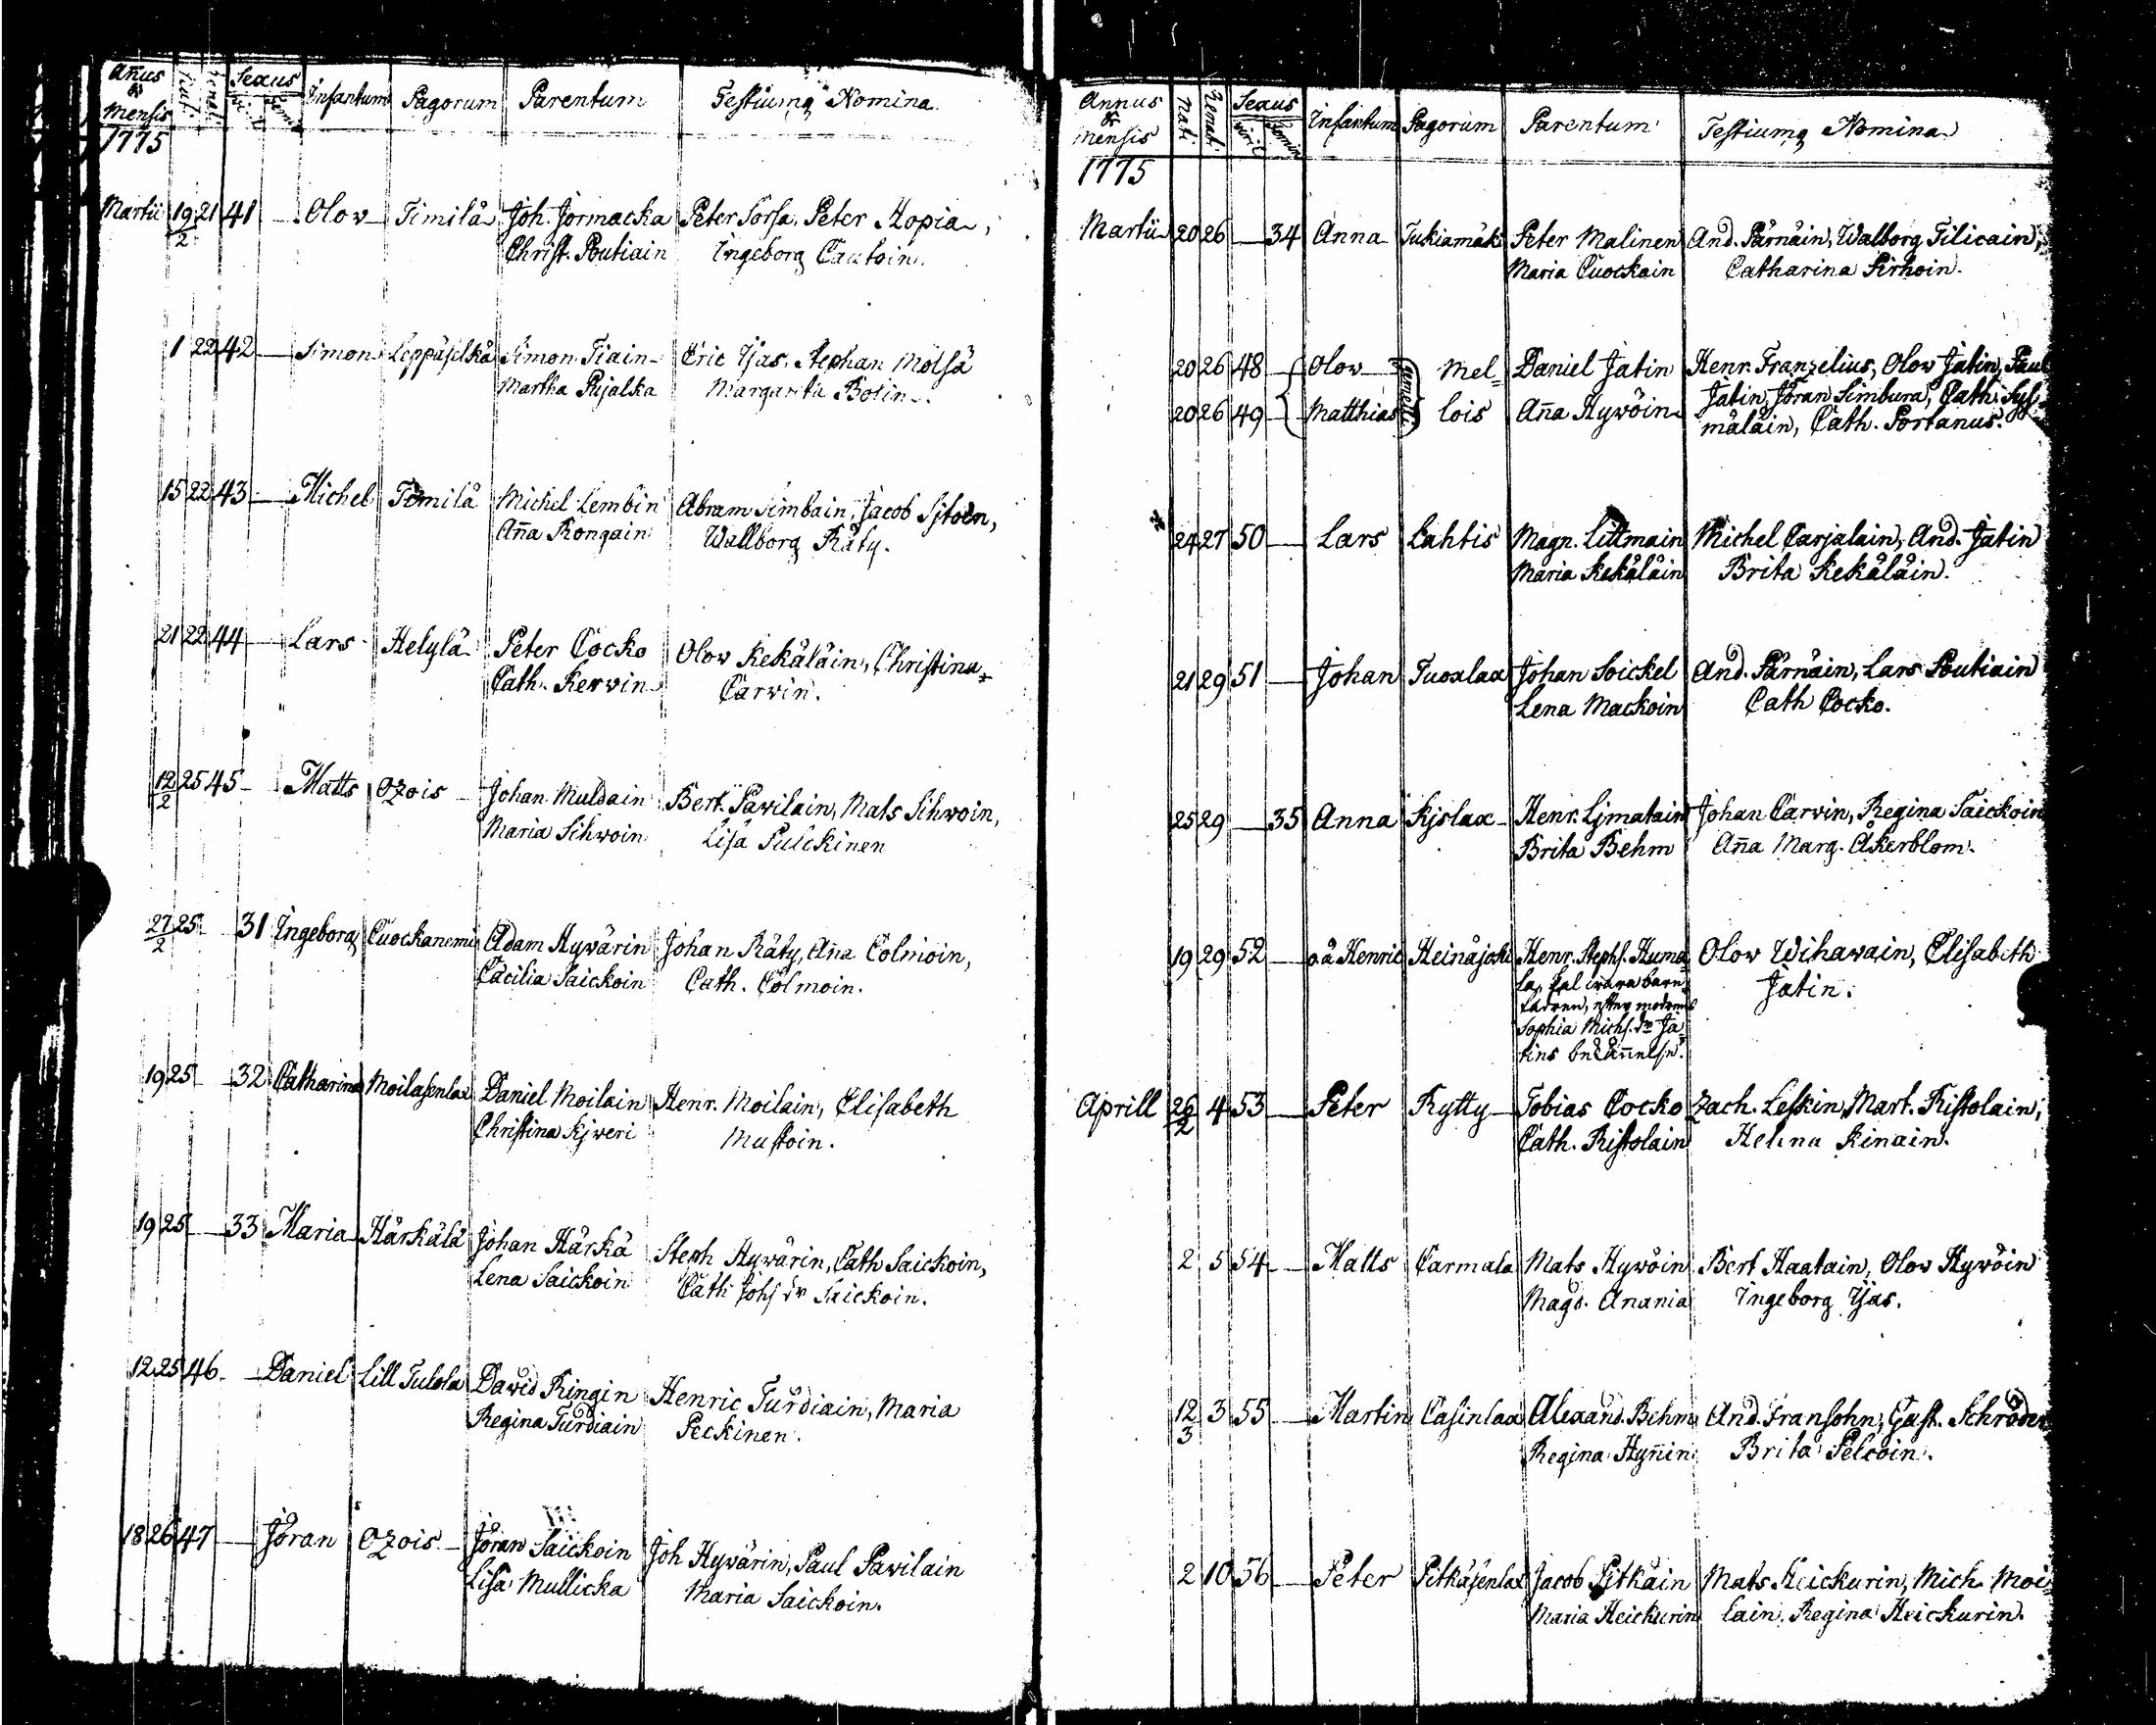 Añus & Mensis Nati Renati Sexus Infantum Pagorum Parentum Testiumq Nomina
viril femin
1775
Martii 19/2 21 41 — Olov Timilä Joh. Jormacka Peter Sorsa, Peter Hopia,
Christ. Poutiain Ingeborg Cautoin.
1 22 42 — Simon Leppäselkä Simon Tiain Eric Ijas, Stephan Mölsä
Martha Pujalka Margareta Bolin.
15 22 43 — Michel Tomila Michel Lembin Abram Simbain, Jacob
Aña Rongain Wallborg Räty.
21 22 44 — Lars Helylä Peter Cocko Olov Kekäläin, Christina
Cath. Kervin Carvin.
12/2 25 45 — Matts Ozois Johan Muldain Bert. Pavilain, Mats Sihvoin,
Maria Sihwoin Lisa Pulckinen
27/2 25 — 31 Ingeborg Cuockanemi Adam Hywärin Johan Räty, Aña Colmoin,
Cäcilia Saickoin Cath. Colmoin.
19 25 — 32 Catharina Moilasenlax Daniel Moilain Henr. Moilain, Elisabeth
Christina Kjweri Mustoin.
19 25 — 33 Maria Härkälä Johan Härkä Steph Hywärin, Cath Saickoin,
Lena Saickoin Cath Johs dr Saickoin.
12 25 46 — Daniel Lill Tulola David Ringin Henric Turdiain, Maria
Regina Turdiain Peckinen.
18 26 47 — Jöran Ozois Jöran Saickoin Joh Hywärin, Paul Pavilain
Lisa Mullicka Maria Saickoin.
Annus & Mensis Nati Renati Sexus Infantum Pagorum Parentum Testiumq Nomina
viril femin
1775
Martii 20 26 — 34 Anna Tukiamäki Peter Malinen And. Pärnäin, Walborg Tilicain,
Maria Cuockain Catharina Sirhoin.
20 26 48 — Olov Mel= Daniel Jatin Henr. Franzelius, Olov Jatin, Paul
gemelli
20 26 49 — Matthias lois Aña Hywöin Jatin, Jöran Simbura, Cath. Syl=
mäläin, Cath. Portanus.
24 27 50 — Lars Lahtis Magn. Littmain Michel Carjalain, And. Jatin
Maria Kekäläin Brita Kekäläin.
21 29 51 — Johan Tuoxlax Johan Soickel And. Pärnäin, Lars Poutiain
Lena Mackoin Cath Cocko.
25 29 — 35 Anna Kjslax Henr. Ljmatain Johan Carvin, Regina Saickoin
Brita Behm Aña Marg. Åkerblom.
19 29 52 — o.ä Henric Heinäjoki Henr. Stephs. Huma= Olov Wihavain, Elisabeth
la, sal wara barn= Jatin.
fadren, efter modrens
Sophia Michs. dr Ja=
tins bekännelse.
Aprill 26/2 4 53 — Peter Rytty Tobias Cocko Zach. Leskin, Mart. Ristolain,
Cath. Ristolain Helena Kinain.
2 5 54 — Matts Carmala Mats Hywöin Bert Haatain, Olov Hywöin
Magd. Anania Ingeborg Ijas.
12/3 3 55 — Martin Casinlax Alexand. Behm And. Fransohn, Gust. Schröder
Regina Hyñin Brita Pelcoin.
2 10 56 — Peter Pitkäsenlax Jacob Pitkäin Mats Heickurin, Mich. Moi=
Maria Heickurin lain, Regina Heickurin.